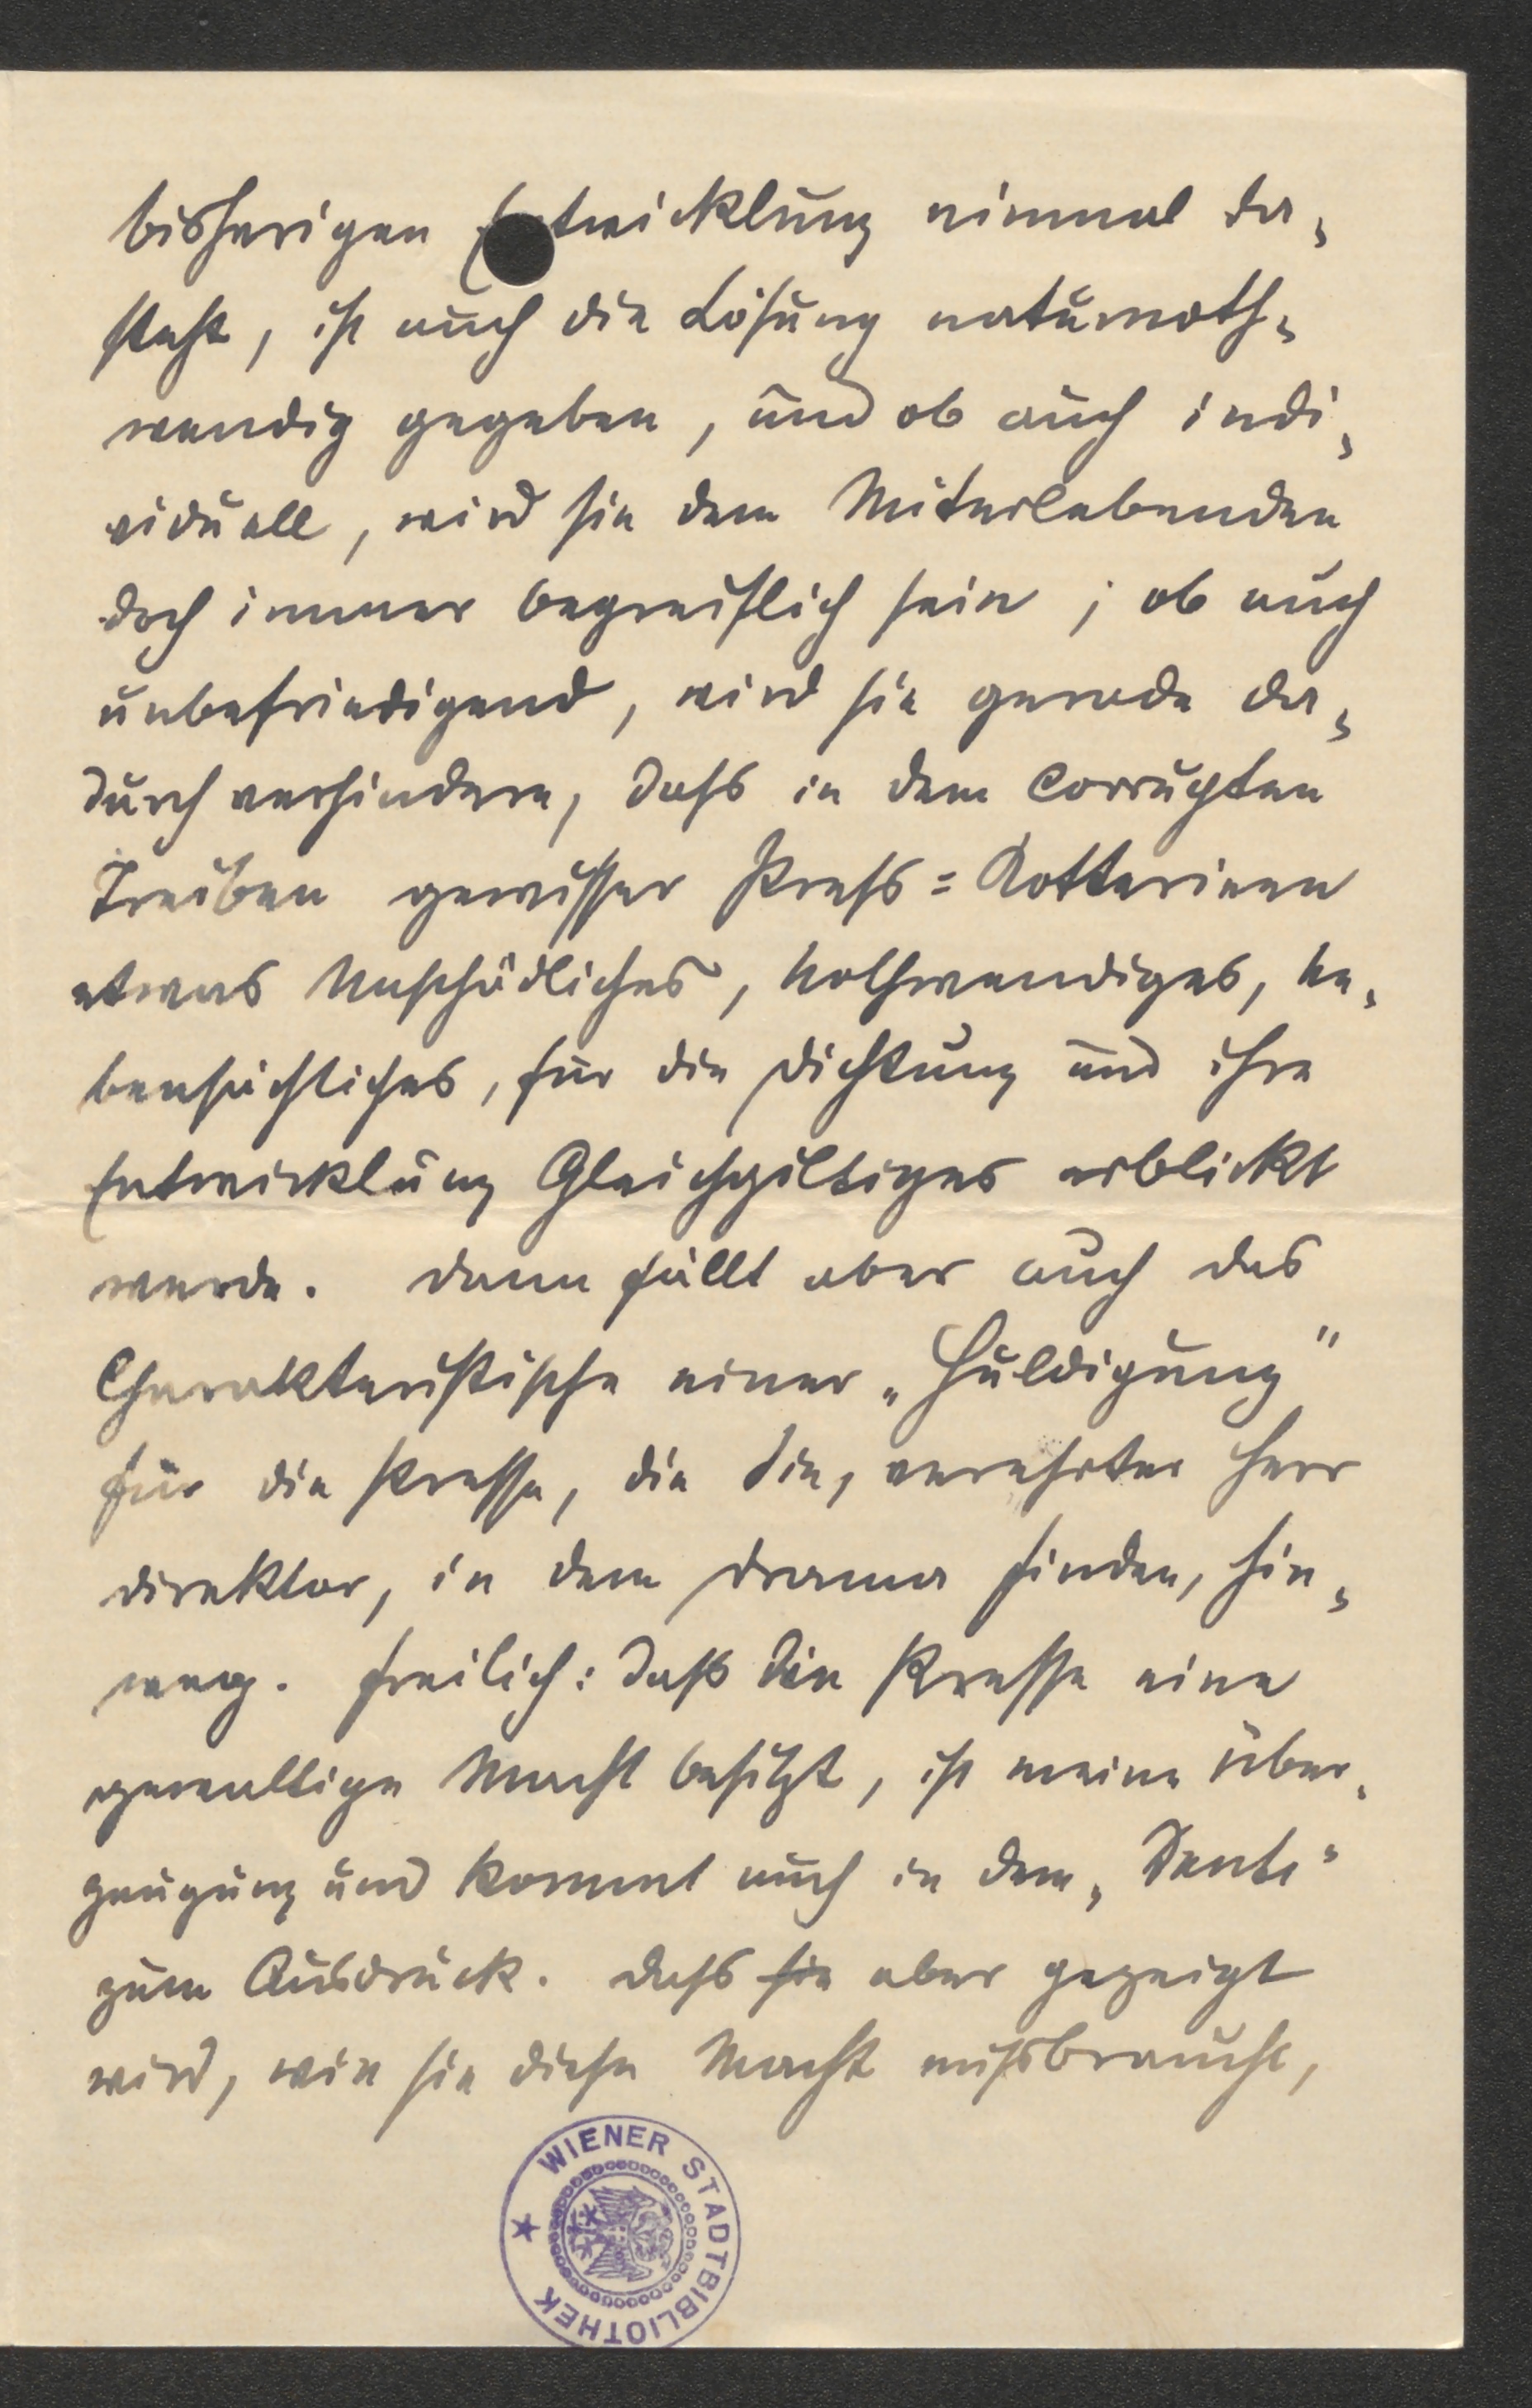 bisherigen Entwicklung einmal da-
steht, ist auch die Lösung naturnoth-
wendig gegeben, und ob auch indi-
viduell, wird sie dem Miterlebenden
doch immer begreiflich sein; ob auch
unbefriedigend, wird sie gerade da-
durch verhindern, dass in dem corrupten
Treiben gewisser Press=Kotterieen
etwas Unschädliches, Nothwendiges, Ne-
bensächliches, für die Dichtung und ihre
Entwicklung Gleichgiltiges erblickt
werde. Dann fällt aber auch das
Charakteristische einer „Huldigung"
für die Presse, die Sie, verehrter Herr
Direktor, in dem Drama finden, hin-
weg. Freilich: Daß die Presse eine
gewaltige Macht besitzt, ist meine Über-
zeugung und kommt auch in dem „Dante"
zum Ausdruck. Dass sie aber gezeigt
wird, wie sie diese Macht missbraucht,
WIENER STADTBIBLIOTHEK